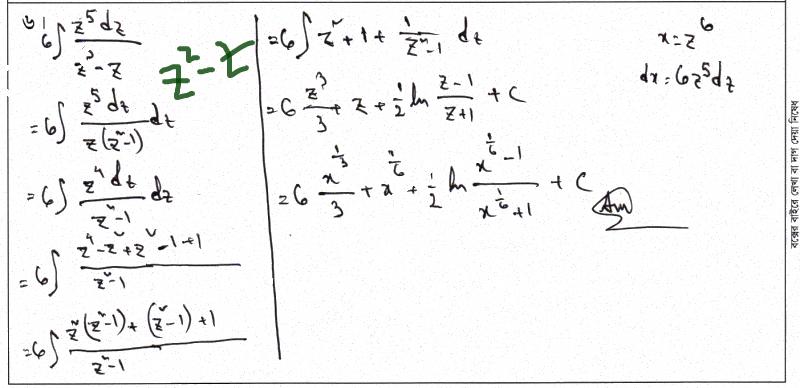 6∫ z⁵dz / z³-z
z²-z
=6∫ z⁵dz / z(z²-1) dz
=6∫ z⁴dz / z²-1 dz
=6∫ z⁴-z²+z²-1+1 / z²-1
=6∫ z²(z²-1)+(z²-1)+1 / z²-1
=6∫ z²+1+ 1/z²-1 dz
=6 z³/3 + z + 1/2 ln z-1/z+1 + C
=6 x^1/3 / 3 + x^1/6 + 1/2 ln x^1/6 -1 / x^1/6 +1 + C Ans
x=z⁶
dx=6z⁵dz
বক্সের বাইরে লেখা বা দাগ দেয়া নিষেধ